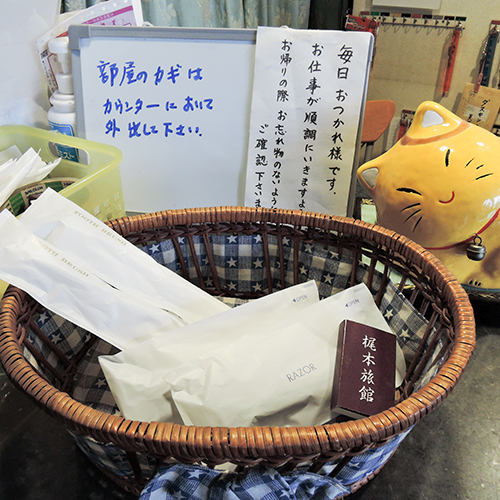 部屋のカギは
カウンターにおいて
外出して下さい.
毎日おつかれ様です.
お仕事が順調にいきますよ
お帰りの際、お忘れ物のないように
ご確認下さいま
TOOTH BRUSH
OPEN
RAZOR
OPEN
梶本旅館